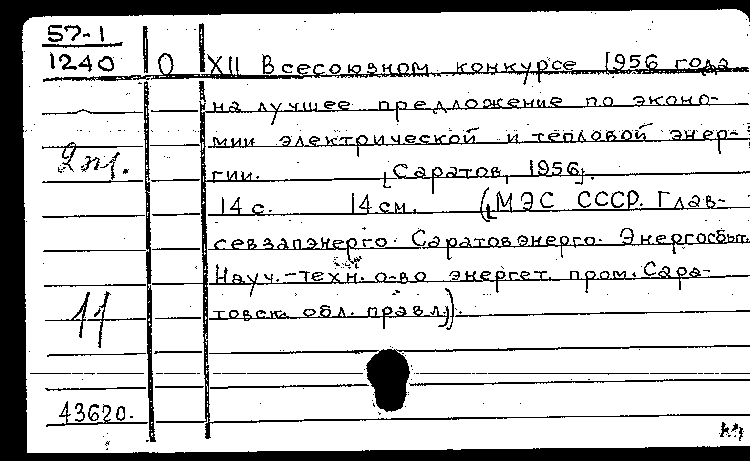 57-1
1240
О XII Всесоюзном конкурсе 1956 года
на лучшее предложение по эконо-
мии электрической и тепловой энер-
гии. [Саратов, 1956].
14 с. 14 см. ([МЭС СССР. Глав-
севзапэнерго. Саратовэнерго. Энергосбыт.
Науч.-техн. о-во энергет. пром. Сара-
товск. обл. правл.]).
2 эп.
11
43620.